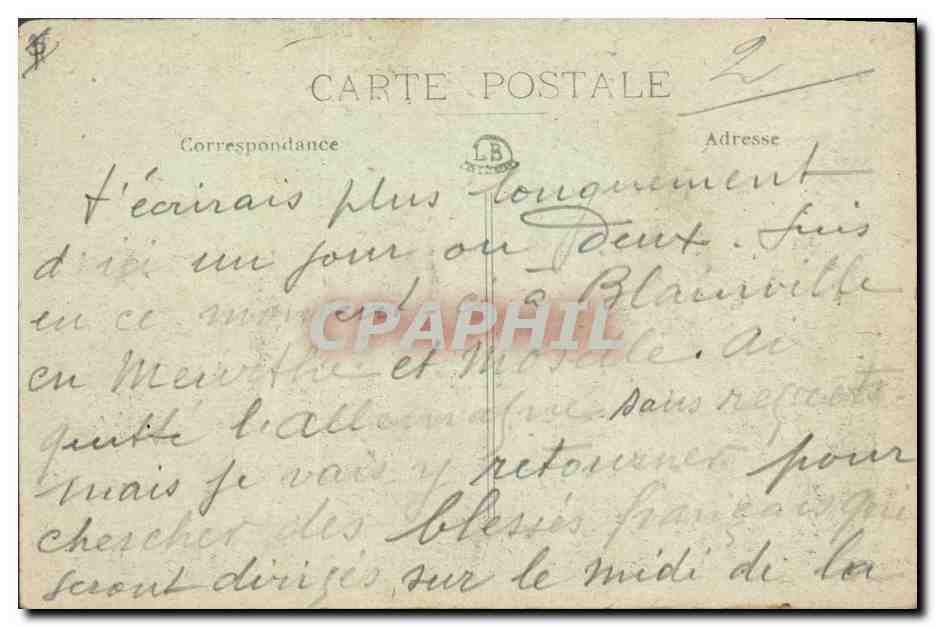 2
CARTE POSTALE
Correspondance
Adresse
LB
t'écrirais plus longuement
d'ici un jour ou deux. Suis
en ce moment à Blainville
CPAPHIL
en Meurthe et Moselle. Ai
quitté l'Allemagne sans regrets
mais je vais y retourner pour
chercher des blessés français qui
seront dirigés sur le midi de la